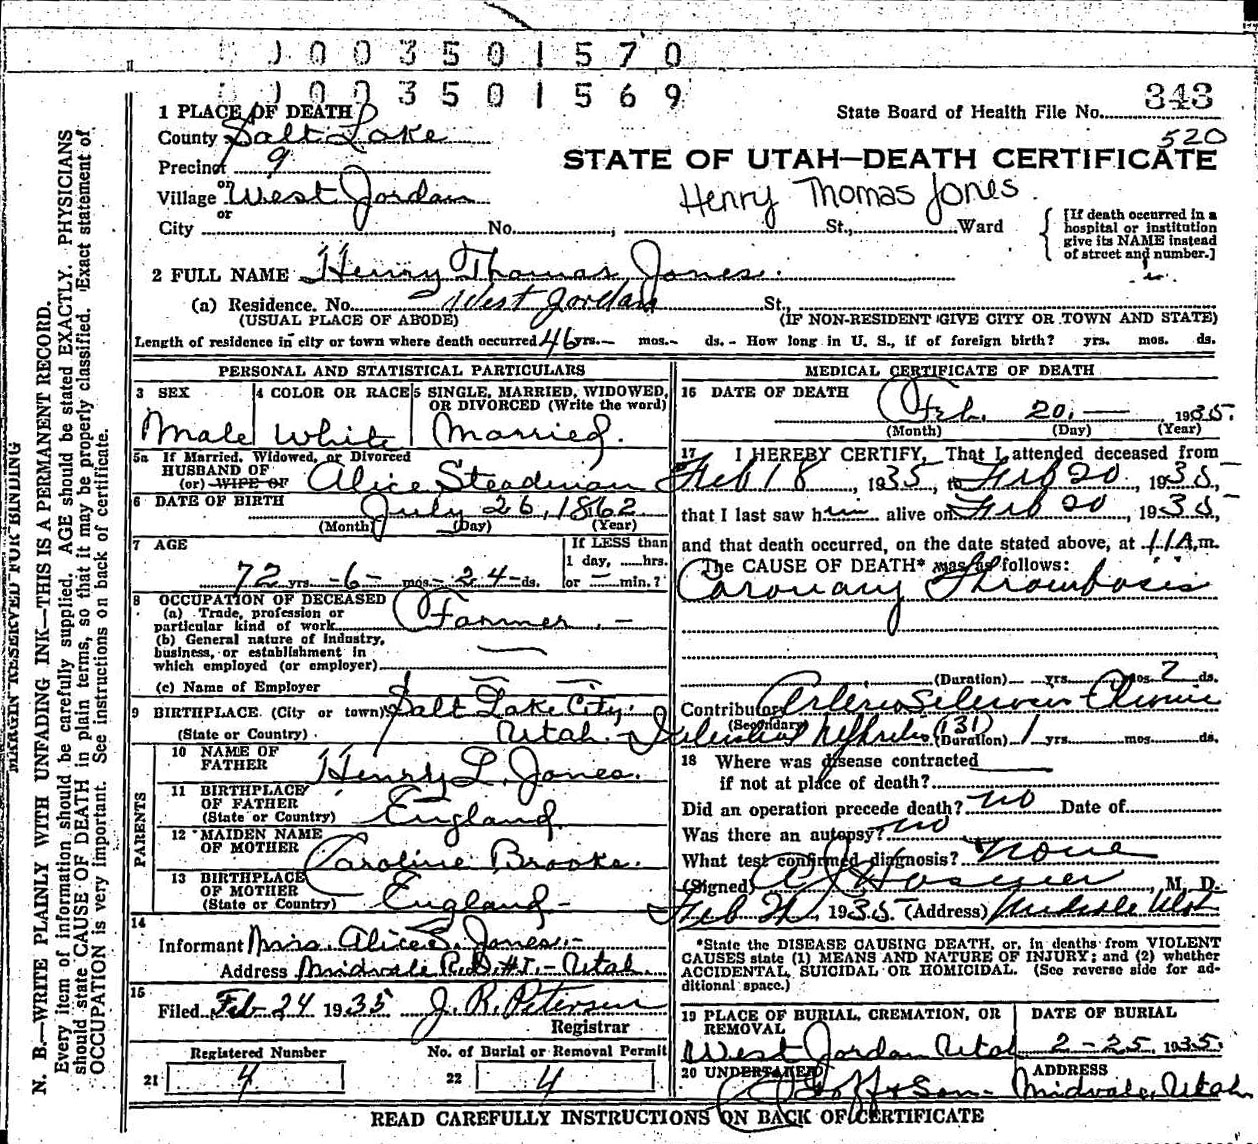 0 0 3 5 0 1 5 7 0
0 0 3 5 0 1 5 6 9
1 PLACE OF DEATH
State Board of Health File No. 343
520
County Salt Lake
Precinct 9
STATE OF UTAH—DEATH CERTIFICATE
or
Village West Jordan
Henry Thomas Jones.
or
City No. , St., Ward
[If death occurred in a
hospital or institution
give its NAME instead
of street and number.]
2 FULL NAME Henry Thomas Jones.
(a) Residence. No. West Jordan St.,
(USUAL PLACE OF ABODE) (IF NON-RESIDENT GIVE CITY OR TOWN AND STATE)
Length of residence in city or town where death occurred 46 yrs.— mos.— ds. - How long in U. S., if of foreign birth? yrs. mos. ds.
PERSONAL AND STATISTICAL PARTICULARS
3 SEX
Male
4 COLOR OR RACE
White
5 SINGLE, MARRIED, WIDOWED,
OR DIVORCED (Write the word)
Married.
5a If Married, Widowed, or Divorced
HUSBAND OF
(or) WIFE OF Alice Steadman
6 DATE OF BIRTH July 26, 1862
(Month) (Day) (Year)
7 AGE
72 yrs -6- mos- 24-ds.
If LESS than
1 day, ....hrs.
or — min.?
8 OCCUPATION OF DECEASED
(a) Trade, profession or
particular kind of work Farmer. -
(b) General nature of industry,
business, or establishment in
which employed (or employer)
(c) Name of Employer
9 BIRTHPLACE (City or town) Salt Lake City.
(State or Country) Utah.
PARENTS
10 NAME OF
FATHER Henry L. Jones.
11 BIRTHPLACE
OF FATHER
(State or Country) England.
12 MAIDEN NAME
OF MOTHER Caroline Brooks.
13 BIRTHPLACE
OF MOTHER
(State or Country) England-
14
Informant Mrs. Alice S. Jones.-
Address Midvale R.D.#1.- Utah.
15
Filed Feb-24 1935 J. R. Peterson
Registrar
Registered Number No. of Burial or Removal Permit
21 4 22 4
MEDICAL CERTIFICATE OF DEATH
16 DATE OF DEATH Feb. 20.— 1935.
(Month) (Day) (Year)
17 I HEREBY CERTIFY, That I attended deceased from
Feb 18, 1935, to Feb 20, 1935,
that I last saw him alive on Feb 20, 1935,
and that death occurred, on the date stated above, at 11 A.m.
The CAUSE OF DEATH* was as follows:
Coronary Thrombosis
(Duration) yrs. mos. 2 ds.
Contributory Chronic
(Secondary)
Nephritis (131) (Duration) 1 yrs. mos. ds.
18 Where was disease contracted
if not at place of death?
Did an operation precede death? no Date of
Was there an autopsy? no
What test confirmed diagnosis? none
(Signed) M. D.
Feb 21, 1935 (Address) Midvale Utah
*State the DISEASE CAUSING DEATH, or, in deaths from VIOLENT
CAUSES state (1) MEANS AND NATURE OF INJURY; and (2) whether
ACCIDENTAL, SUICIDAL OR HOMICIDAL. (See reverse side for ad-
ditional space.)
19 PLACE OF BURIAL, CREMATION, OR
REMOVAL
West Jordan Utah
DATE OF BURIAL
2-25, 1935.
20 UNDERTAKER
Goff & Son-
ADDRESS
Midvale, Utah
READ CAREFULLY INSTRUCTIONS ON BACK OF CERTIFICATE
MARGIN RESERVED FOR BINDING
N. B.—WRITE PLAINLY WITH UNFADING INK—THIS IS A PERMANENT RECORD.
Every item of information should be carefully supplied. AGE should be stated EXACTLY. PHYSICIANS
should state CAUSE OF DEATH in plain terms, so that it may be properly classified. Exact statement of
OCCUPATION is very important. See instructions on back of certificate.